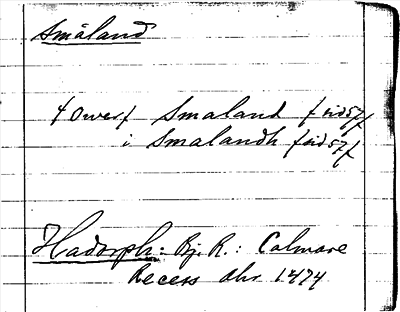 Småland
4 Owerf Smaland f sid 57 f
i Smalandh f sid 57 f
Hadorph: Bj. R.: Calmare
Recess Ahr 1474